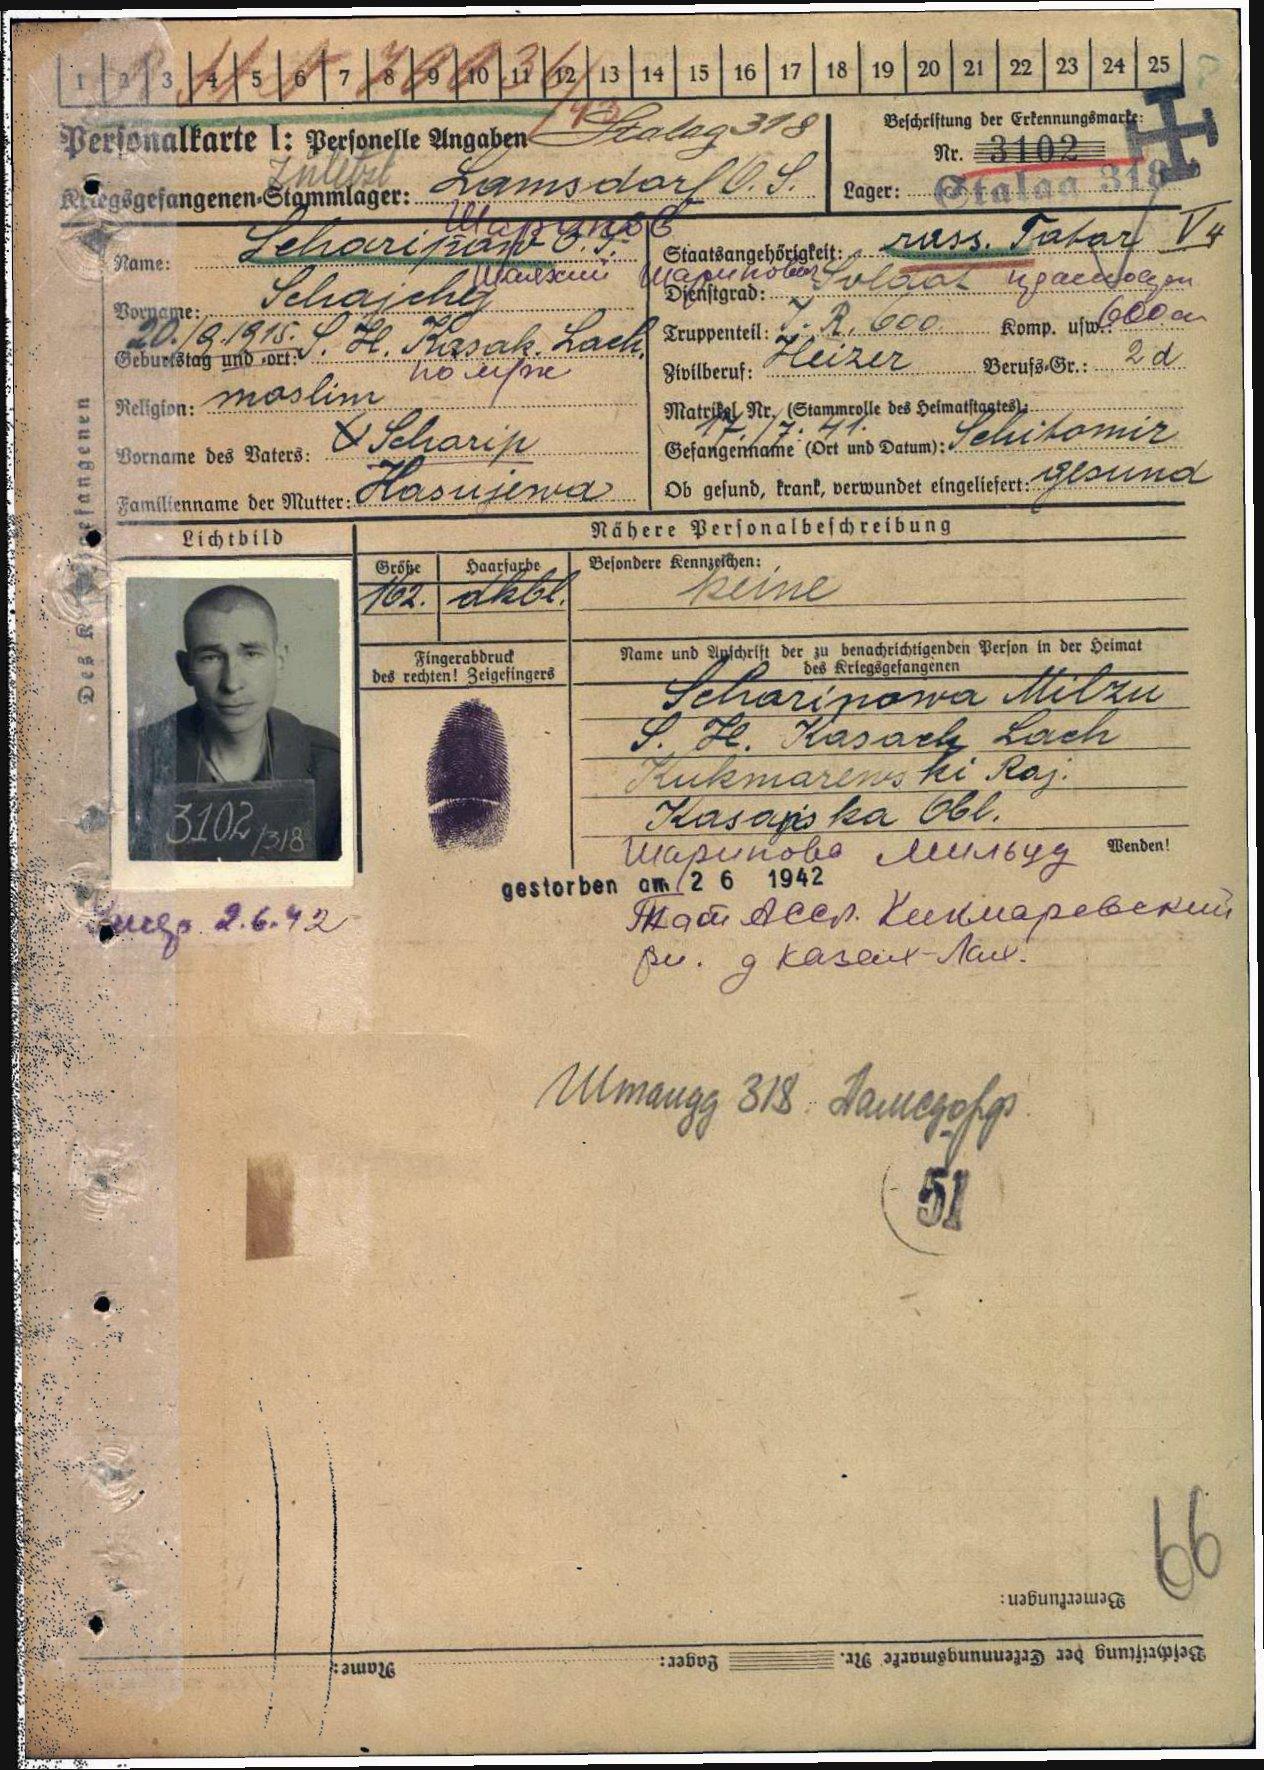 1 2 3 4 5 6 7 8 9 10 11 12 13 14 15 16 17 18 19 20 21 22 23 24 25
Personalkarte I: Personelle Angaben
Stalag 318
Beschriftung der Erkennungsmarke:
Nr. 3102
Kriegsgefangenen-Stammlager: Lamsdorf O. S.
Lager: Stalag 318
Шарипов
Name: Scharipow
Staatsangehörigkeit: russ. Tatar V4
Vorname: Schajchij
Dienstgrad: Soldat
20. 1915. S. H. Kasak. Lach.
Geburtstag und -ort:
Truppenteil: J. R. 600 Komp. usw.:
Zivilberuf: Heizer Berufs-Gr.: 2d
Religion: moslim
Matrikel Nr. (Stammrolle des Heimatstaates):
17. 7. 41.
Vorname des Vaters: Scharip
Gefangennahme (Ort und Datum): Schitomir
Familienname der Mutter: Hasujewa
Ob gesund, krank, verwundet eingeliefert: gesund
Des Kriegsgefangenen
Lichtbild
Nähere Personalbeschreibung
Größe Haarfarbe Besondere Kennzeichen:
162. dkbl. keine
Fingerabdruck
des rechten! Zeigefingers
Name und Anschrift der zu benachrichtigenden Person in der Heimat
des Kriegsgefangenen
Scharipowa Milzu
S. H. Kasach Lach
Kukmarewski Raj.
Kasanska Obl.
3102/318
Шарипова Мильцу
Wenden!
gestorben am 2 6 1942
2.6.42
Тат АССР. Кукмаревский
рн. д Казах-Лах.
318 Ламсдорф
51
66
Bemerkungen:
Beschriftung der Erkennungsmarke Nr. Lager: Name: